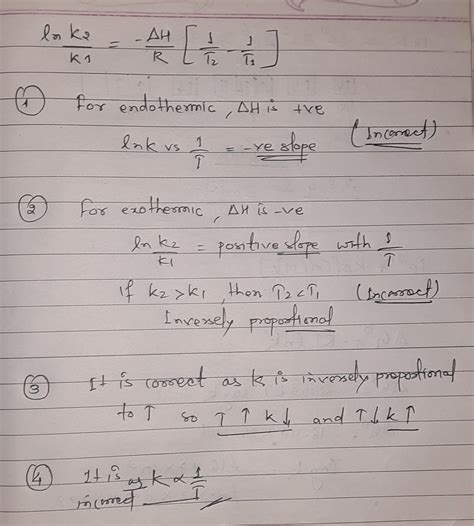 ln k2/k1 = -ΔH/R [1/T2 - 1/T1]
① For endothermic, ΔH is +ve
lnk vs 1/T = -ve slope (Incorrect)
② For exothermic, ΔH is -ve
ln k2/k1 = positive slope with 1/T
if k2>k1, then T2<T1 (Incorrect)
Inversely proportional
③ It is correct as k is inversely proportional
to T so T↑ k↓ and T↓ k↑
④ It is as k ∝ 1/T
incorrect